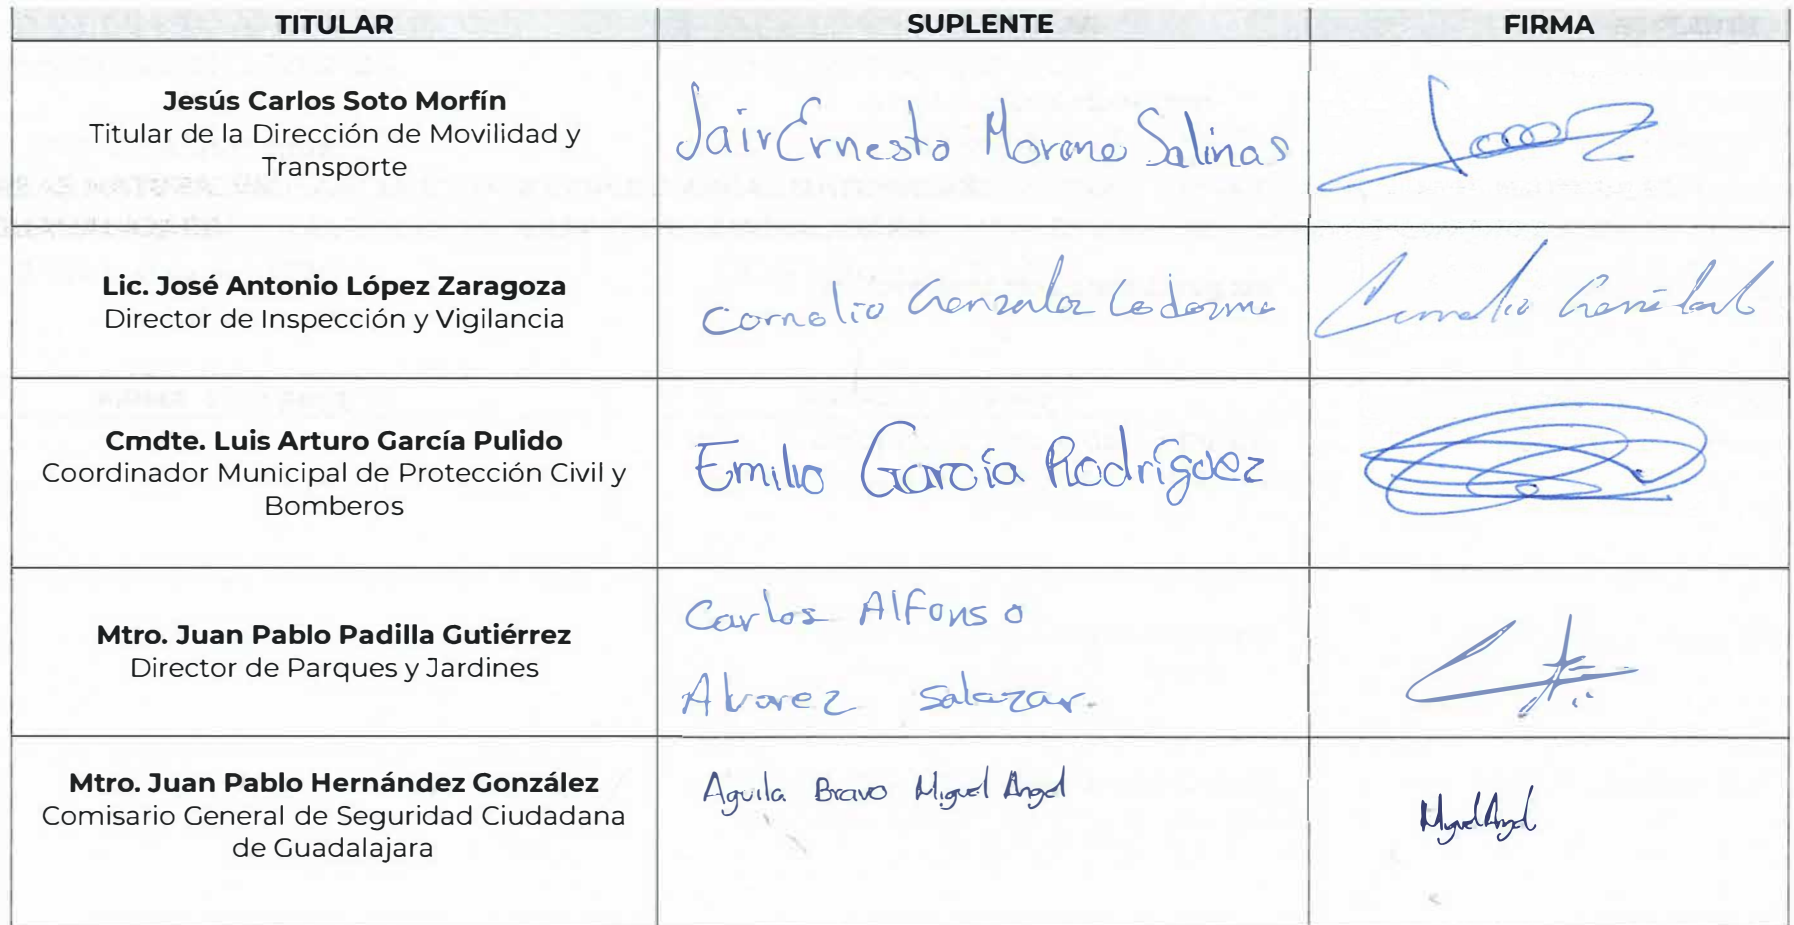 TITULAR SUPLENTE FIRMA
Jesús Carlos Soto Morfín
Titular de la Dirección de Movilidad y
Transporte
Jair Ernesto Moreno Salinas
Lic. José Antonio López Zaragoza
Director de Inspección y Vigilancia
Cornelio Gonzalez Ledezma
Cmdte. Luis Arturo García Pulido
Coordinador Municipal de Protección Civil y
Bomberos
Emilio García Rodríguez
Mtro. Juan Pablo Padilla Gutiérrez
Director de Parques y Jardines
Carlos Alfonso
Alvarez Salazar.
Mtro. Juan Pablo Hernández González
Comisario General de Seguridad Ciudadana
de Guadalajara
Aguila Bravo Miguel Angel
Miguel Angel